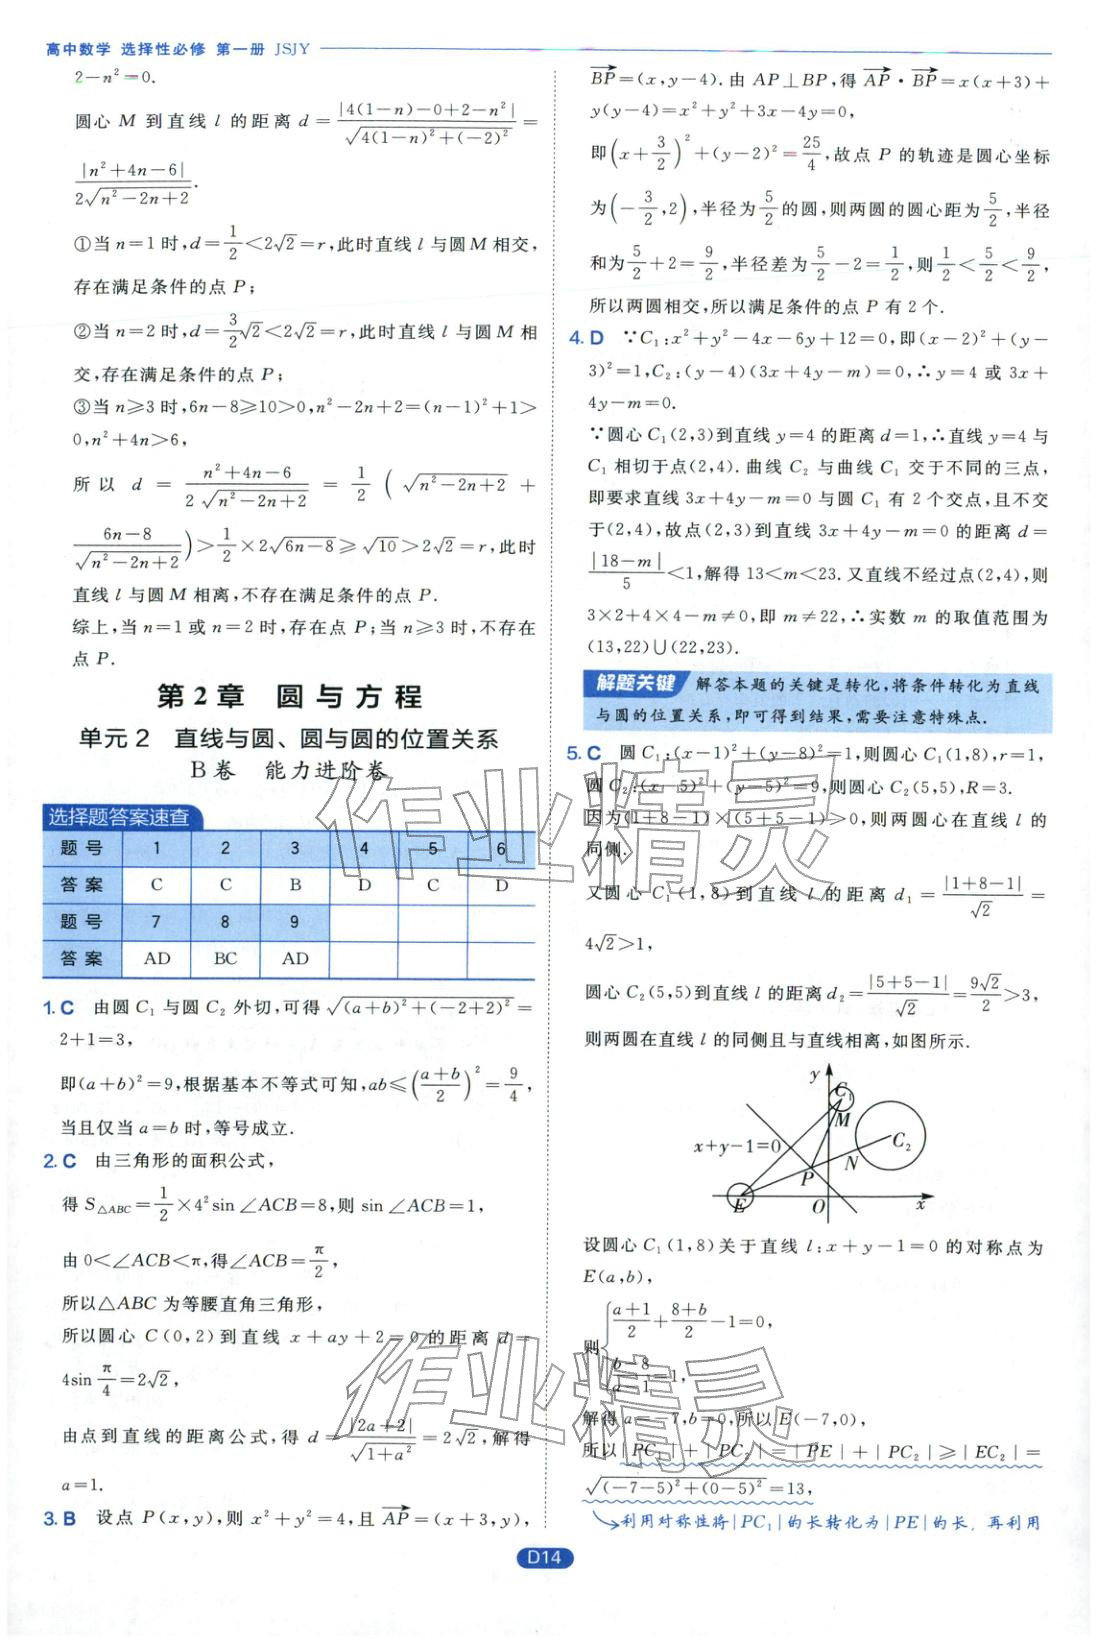 高中数学 选择性必修 第一册 JSJY
2－n²＝0.
圆心 M 到直线 l 的距离 d＝|4(1－n)－0＋2－n²|/√(4(1－n)²＋(－2)²)＝
|n²＋4n－6|/(2√(n²－2n＋2)).
①当 n＝1 时,d＝1/2＜2√2＝r,此时直线 l 与圆 M 相交,
存在满足条件的点 P;
②当 n＝2 时,d＝(3/2)√2＜2√2＝r,此时直线 l 与圆 M 相
交,存在满足条件的点 P;
③当 n≥3 时,6n－8≥10＞0,n²－2n＋2＝(n－1)²＋1＞
0,n²＋4n＞6,
所以 d＝(n²＋4n－6)/(2√(n²－2n＋2))＝1/2(√(n²－2n＋2)＋
(6n－8)/√(n²－2n＋2))＞1/2×2√(6n－8)≥√10＞2√2＝r,此时
直线 l 与圆 M 相离,不存在满足条件的点 P.
综上,当 n＝1 或 n＝2 时,存在点 P;当 n≥3 时,不存在
点 P.
第 2 章 圆与方程
单元 2 直线与圆、圆与圆的位置关系
B 卷 能力进阶卷
选择题答案速查
题号 1 2 3 4 5 6
答案 C C B D C D
题号 7 8 9
答案 AD BC AD
1. C 由圆 C₁ 与圆 C₂ 外切,可得 √((a＋b)²＋(－2＋2)²)＝
2＋1＝3,
即(a＋b)²＝9,根据基本不等式可知,ab≤((a＋b)/2)²＝9/4,
当且仅当 a＝b 时,等号成立.
2. C 由三角形的面积公式,
得 S△ABC＝1/2×4²sin∠ACB＝8,则 sin∠ACB＝1,
由 0＜∠ACB＜π,得∠ACB＝π/2,
所以△ABC 为等腰直角三角形,
所以圆心 C(0,2)到直线 x＋ay＋2＝0 的距离 d＝
4sin π/4＝2√2,
由点到直线的距离公式,得 d＝|2a＋2|/√(1＋a²)＝2√2,解得
a＝1.
3. B 设点 P(x,y),则 x²＋y²＝4,且 AP→＝(x＋3,y),
BP→＝(x,y－4).由 AP⊥BP,得 AP→·BP→＝x(x＋3)＋
y(y－4)＝x²＋y²＋3x－4y＝0,
即(x＋3/2)²＋(y－2)²＝25/4,故点 P 的轨迹是圆心坐标
为(－3/2,2),半径为5/2的圆,则两圆的圆心距为5/2,半径
和为5/2＋2＝9/2,半径差为5/2－2＝1/2,则1/2＜5/2＜9/2,
所以两圆相交,所以满足条件的点 P 有 2 个.
4. D ∵C₁:x²＋y²－4x－6y＋12＝0,即(x－2)²＋(y－
3)²＝1,C₂:(y－4)(3x＋4y－m)＝0,∴y＝4 或 3x＋
4y－m＝0.
∵圆心 C₁(2,3)到直线 y＝4 的距离 d＝1,∴直线 y＝4 与
C₁ 相切于点(2,4).曲线 C₂ 与曲线 C₁ 交于不同的三点,
即要求直线 3x＋4y－m＝0 与圆 C₁ 有 2 个交点,且不交
于(2,4),故点(2,3)到直线 3x＋4y－m＝0 的距离 d＝
|18－m|/5＜1,解得 13＜m＜23.又直线不经过点(2,4),则
3×2＋4×4－m≠0,即 m≠22,∴实数 m 的取值范围为
(13,22)∪(22,23).
解题关键 解答本题的关键是转化,将条件转化为直线
与圆的位置关系,即可得到结果,需要注意特殊点.
5. C 圆 C₁:(x－1)²＋(y－8)²＝1,则圆心 C₁(1,8),r＝1,
圆 C₂:(x－5)²＋(y－5)²＝9,则圆心 C₂(5,5),R＝3.
因为(1＋8－1)×(5＋5－1)＞0,则两圆心在直线 l 的
同侧.
又圆心 C₁(1,8)到直线 l 的距离 d₁＝|1＋8－1|/√2＝
4√2＞1,
圆心 C₂(5,5)到直线 l 的距离 d₂＝|5＋5－1|/√2＝9√2/2＞3,
则两圆在直线 l 的同侧且与直线相离,如图所示.
y
C₁
M
x＋y－1＝0
C₂
N
P
E O x
设圆心 C₁(1,8)关于直线 l:x＋y－1＝0 的对称点为
E(a,b),
则{(a＋1)/2＋(8＋b)/2－1＝0,
(b－8)/(a－1)＝1,
解得 a＝－7,b＝0,所以 E(－7,0),
所以|PC₁|＋|PC₂|＝|PE|＋|PC₂|≥|EC₂|＝
√((－7－5)²＋(0－5)²)＝13,
利用对称性将|PC₁|的长转化为|PE|的长,再利用
D14
作业精灵
作业精灵